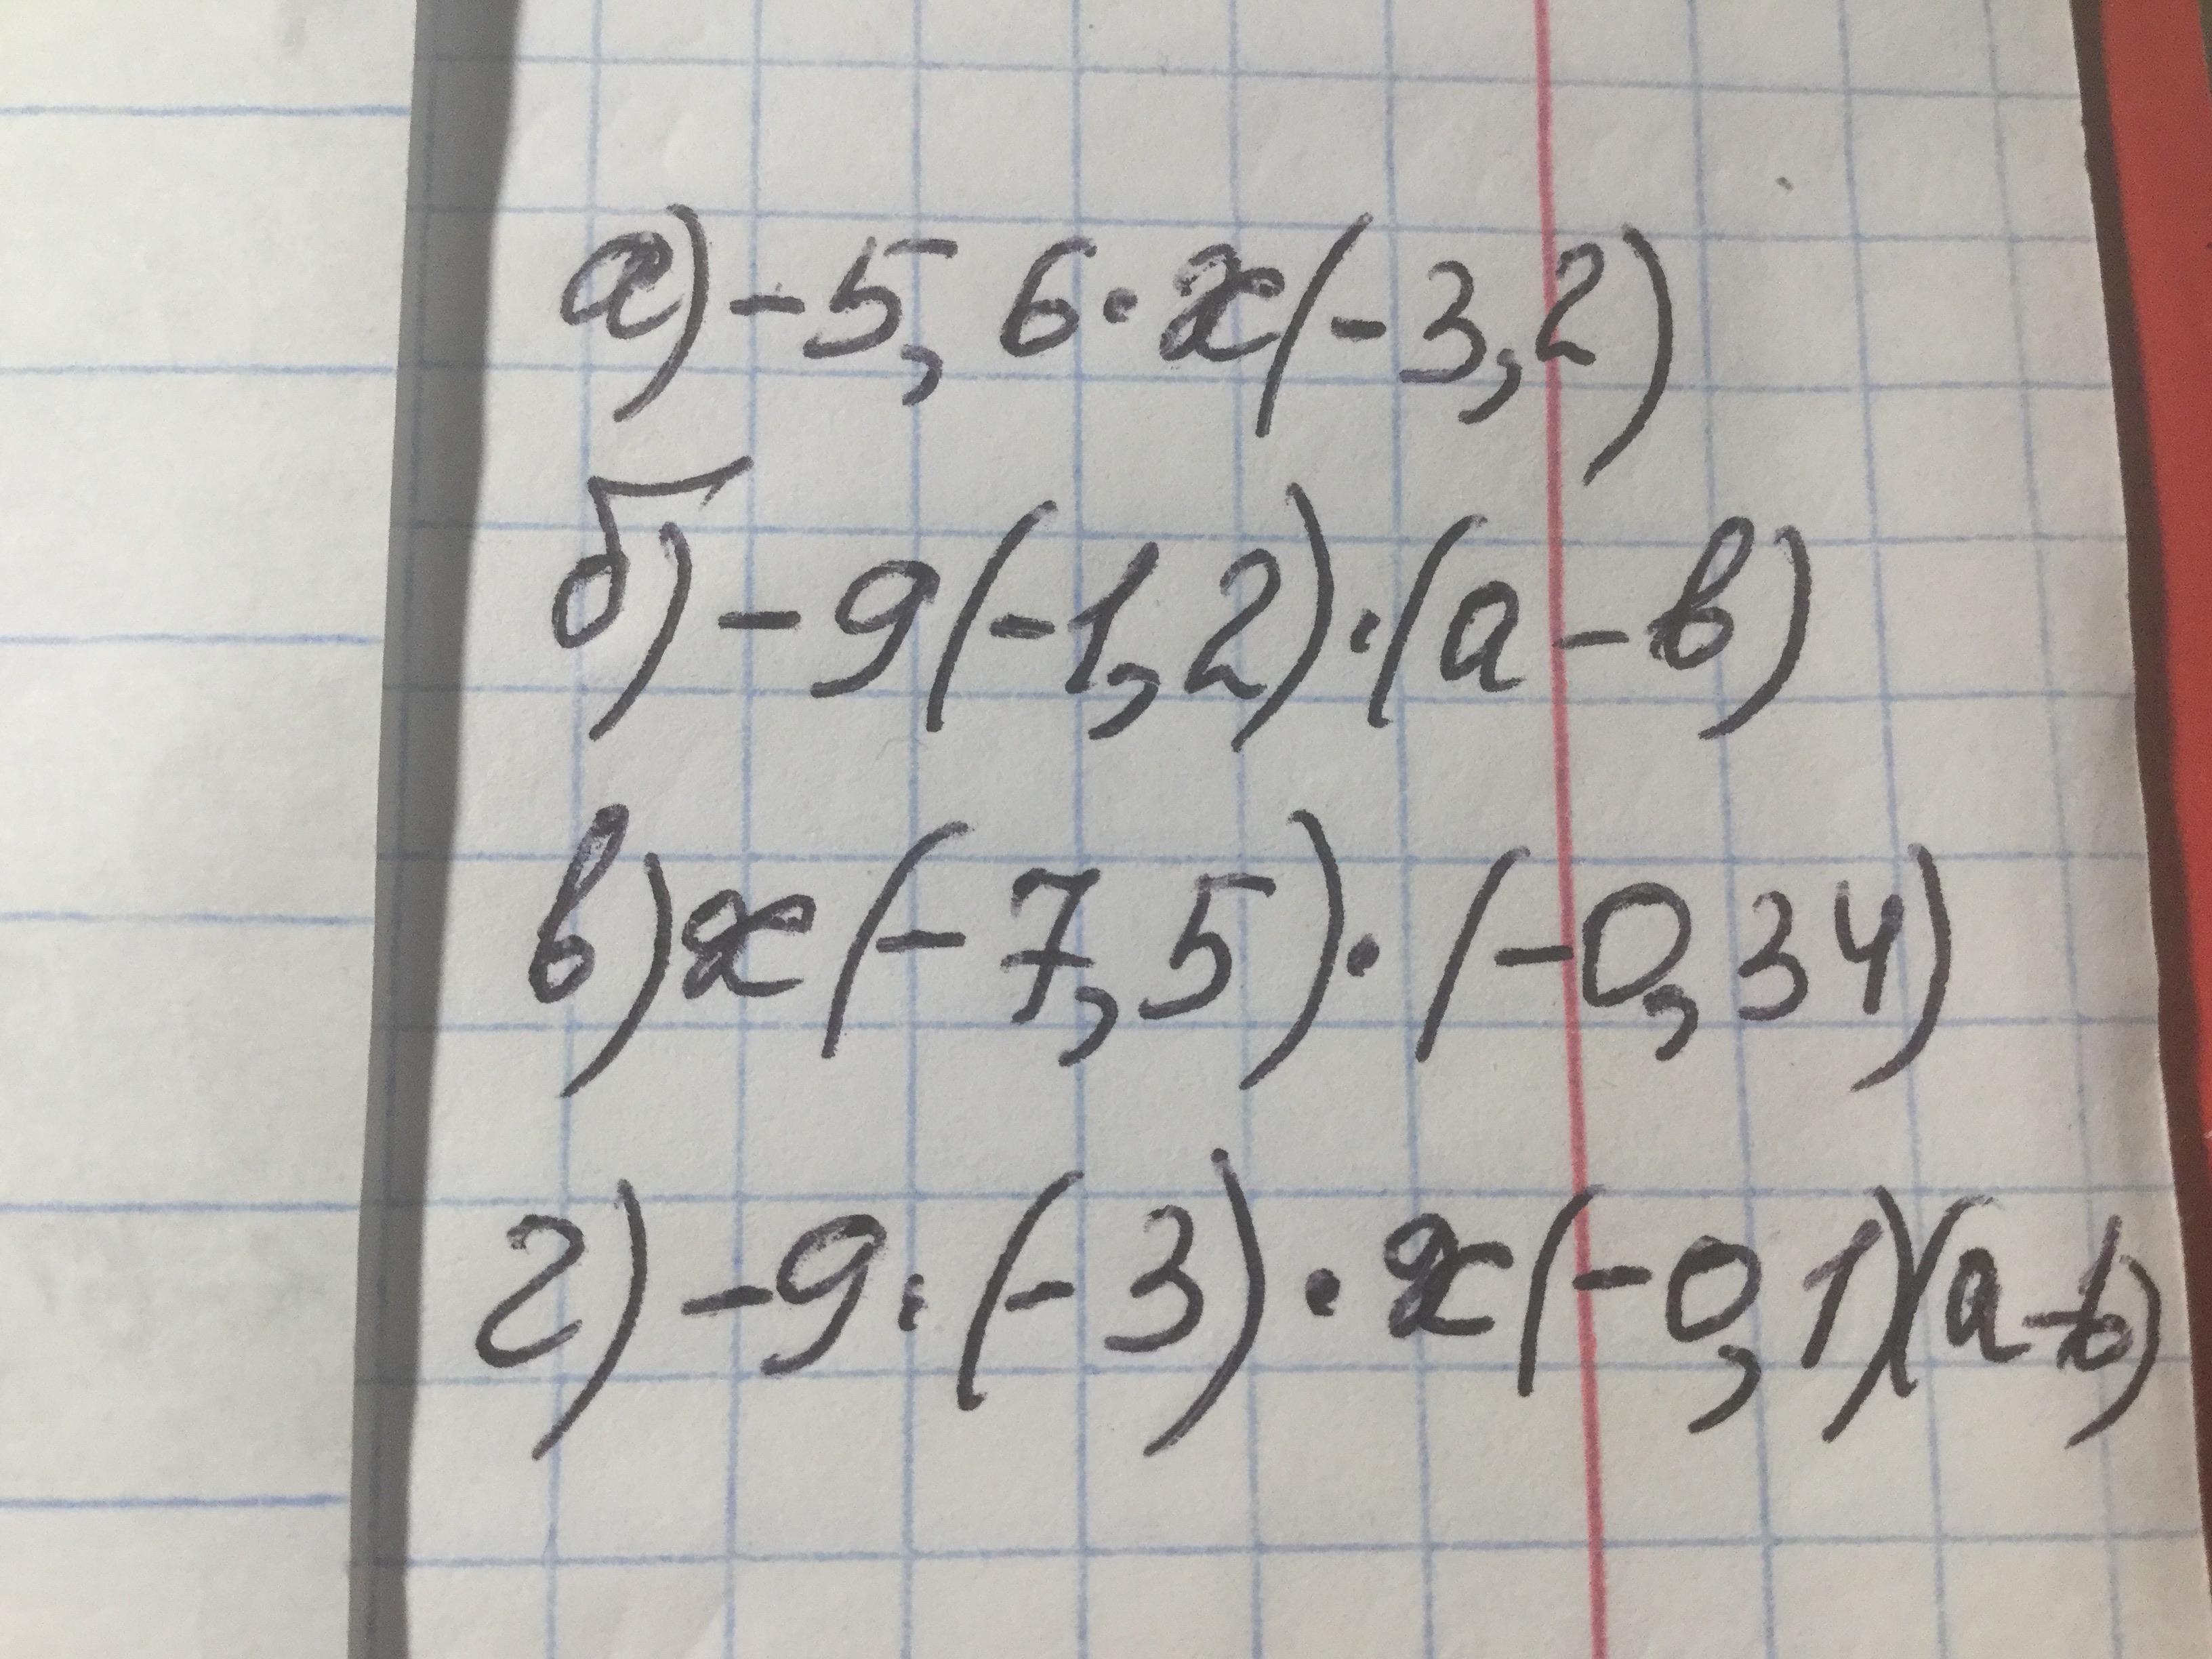 а) -5,6·x(-3,2)
б) -9(-1,2)·(a-b)
в) x(-7,5)·(-0,34)
г) -9·(-3)·x(-0,1)(a-b)